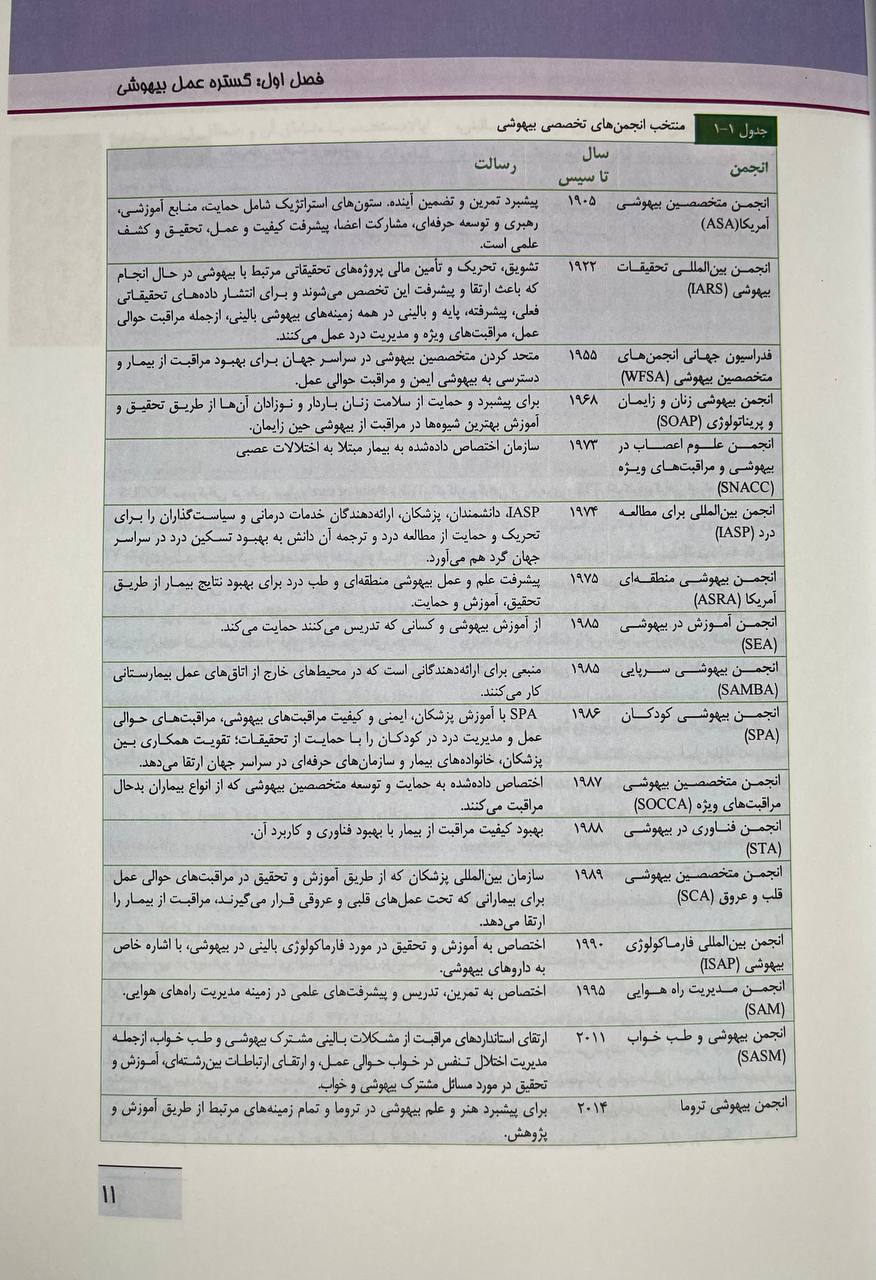 فصل اول: گستره عمل بیهوشی
جدول ۱-۱ منتخب انجمن‌های تخصصی بیهوشی
انجمن سال تا سیس رسالت
انجمن متخصصین بیهوشی ۱۹۰۵ پیشبرد تمرین و تضمین آینده. ستون‌های استراتژیک شامل حمایت، منابع آموزشی،
آمریکا(ASA) رهبری و توسعه حرفه‌ای، مشارکت اعضا، پیشرفت کیفیت و عمل، تحقیق و کشف
علمی است.
انجمن بین‌المللی تحقیقات ۱۹۲۲ تشویق، تحریک و تأمین مالی پروژه‌های تحقیقاتی مرتبط با بیهوشی در حال انجام
بیهوشی (IARS) که باعث ارتقا و پیشرفت این تخصص می‌شوند و برای انتشار داده‌های تحقیقاتی
فعلی، پیشرفته، پایه و بالینی در همه زمینه‌های بیهوشی بالینی، ازجمله مراقبت حوالی
عمل، مراقبت‌های ویژه و مدیریت درد عمل می‌کنند.
فدراسیون جهانی انجمن‌های ۱۹۵۵ متحد کردن متخصصین بیهوشی در سراسر جهان برای بهبود مراقبت از بیمار و
متخصصین بیهوشی (WFSA) دسترسی به بیهوشی ایمن و مراقبت حوالی عمل.
انجمن بیهوشی زنان و زایمان ۱۹۶۸ برای پیشبرد و حمایت از سلامت زنان باردار و نوزادان آن‌ها از طریق تحقیق و
و پریناتولوژی (SOAP) آموزش بهترین شیوه‌ها در مراقبت از بیهوشی حین زایمان.
انجمن علوم اعصاب در ۱۹۷۳ سازمان اختصاص داده‌شده به بیمار مبتلا به اختلالات عصبی
بیهوشی و مراقبت‌های ویژه
(SNACC)
انجمن بین‌المللی برای مطالعه ۱۹۷۴ IASP، دانشمندان، پزشکان، ارائه‌دهندگان خدمات درمانی و سیاست‌گذاران را برای
درد (IASP) تحریک و حمایت از مطالعه درد و ترجمه آن دانش به بهبود تسکین درد در سراسر
جهان گرد هم می‌آورد.
انجمن بیهوشی منطقه‌ای ۱۹۷۵ پیشرفت علم و عمل بیهوشی منطقه‌ای و طب درد برای بهبود نتایج بیمار از طریق
آمریکا (ASRA) تحقیق، آموزش و حمایت.
انجمن آموزش در بیهوشی ۱۹۸۵ از آموزش بیهوشی و کسانی که تدریس می‌کنند حمایت می‌کند.
(SEA)
انجمن بیهوشی سرپایی ۱۹۸۵ منبعی برای ارائه‌دهندگانی است که در محیط‌های خارج از اتاق‌های عمل بیمارستانی
(SAMBA) کار می‌کنند.
انجمن بیهوشی کودکان ۱۹۸۶ SPA با آموزش پزشکان، ایمنی و کیفیت مراقبت‌های بیهوشی، مراقبت‌های حوالی
(SPA) عمل و مدیریت درد در کودکان را با حمایت از تحقیقات؛ تقویت همکاری بین
پزشکان، خانواده‌های بیمار و سازمان‌های حرفه‌ای در سراسر جهان ارتقا می‌دهد.
انجمن متخصصین بیهوشی ۱۹۸۷ اختصاص داده‌شده به حمایت و توسعه متخصصین بیهوشی که از انواع بیماران بدحال
مراقبت‌های ویژه (SOCCA) مراقبت می‌کنند.
انجمن فناوری در بیهوشی ۱۹۸۸ بهبود کیفیت مراقبت از بیمار با بهبود فناوری و کاربرد آن.
(STA)
انجمن متخصصین بیهوشی ۱۹۸۹ سازمان بین‌المللی پزشکان که از طریق آموزش و تحقیق در مراقبت‌های حوالی عمل
قلب و عروق (SCA) برای بیمارانی که تحت عمل‌های قلبی و عروقی قرار می‌گیرند، مراقبت از بیمار را
ارتقا می‌دهد.
انجمن بین‌المللی فارماکولوژی ۱۹۹۰ اختصاص به آموزش و تحقیق در مورد فارماکولوژی بالینی در بیهوشی، با اشاره خاص
بیهوشی (ISAP) به داروهای بیهوشی.
انجمن مدیریت راه هوایی ۱۹۹۵ اختصاص به تمرین، تدریس و پیشرفت‌های علمی در زمینه مدیریت راه‌های هوایی.
(SAM)
انجمن بیهوشی و طب خواب ۲۰۱۱ ارتقای استانداردهای مراقبت از مشکلات بالینی مشترک بیهوشی و طب خواب، ازجمله
(SASM) مدیریت اختلال تنفس در خواب حوالی عمل، و ارتقای ارتباطات بین‌رشته‌ای، آموزش و
تحقیق در مورد مسائل مشترک بیهوشی و خواب.
انجمن بیهوشی تروما ۲۰۱۴ برای پیشبرد هنر و علم بیهوشی در تروما و تمام زمینه‌های مرتبط از طریق آموزش و
پژوهش.
۱۱